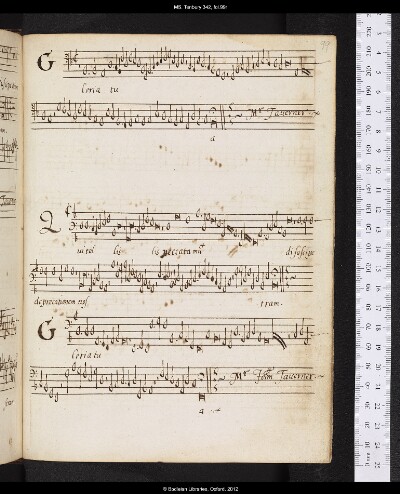 MS. Tenbury 342, fol.99r
99
Gloria tu
Mr. Tauerner
a
Qui tol lis tis peccata mũ di suscipe
deprecationem nost tram.
Gloria tu
Mr. John Tauerner
a
© Bodleian Libraries, Oxford, 2012